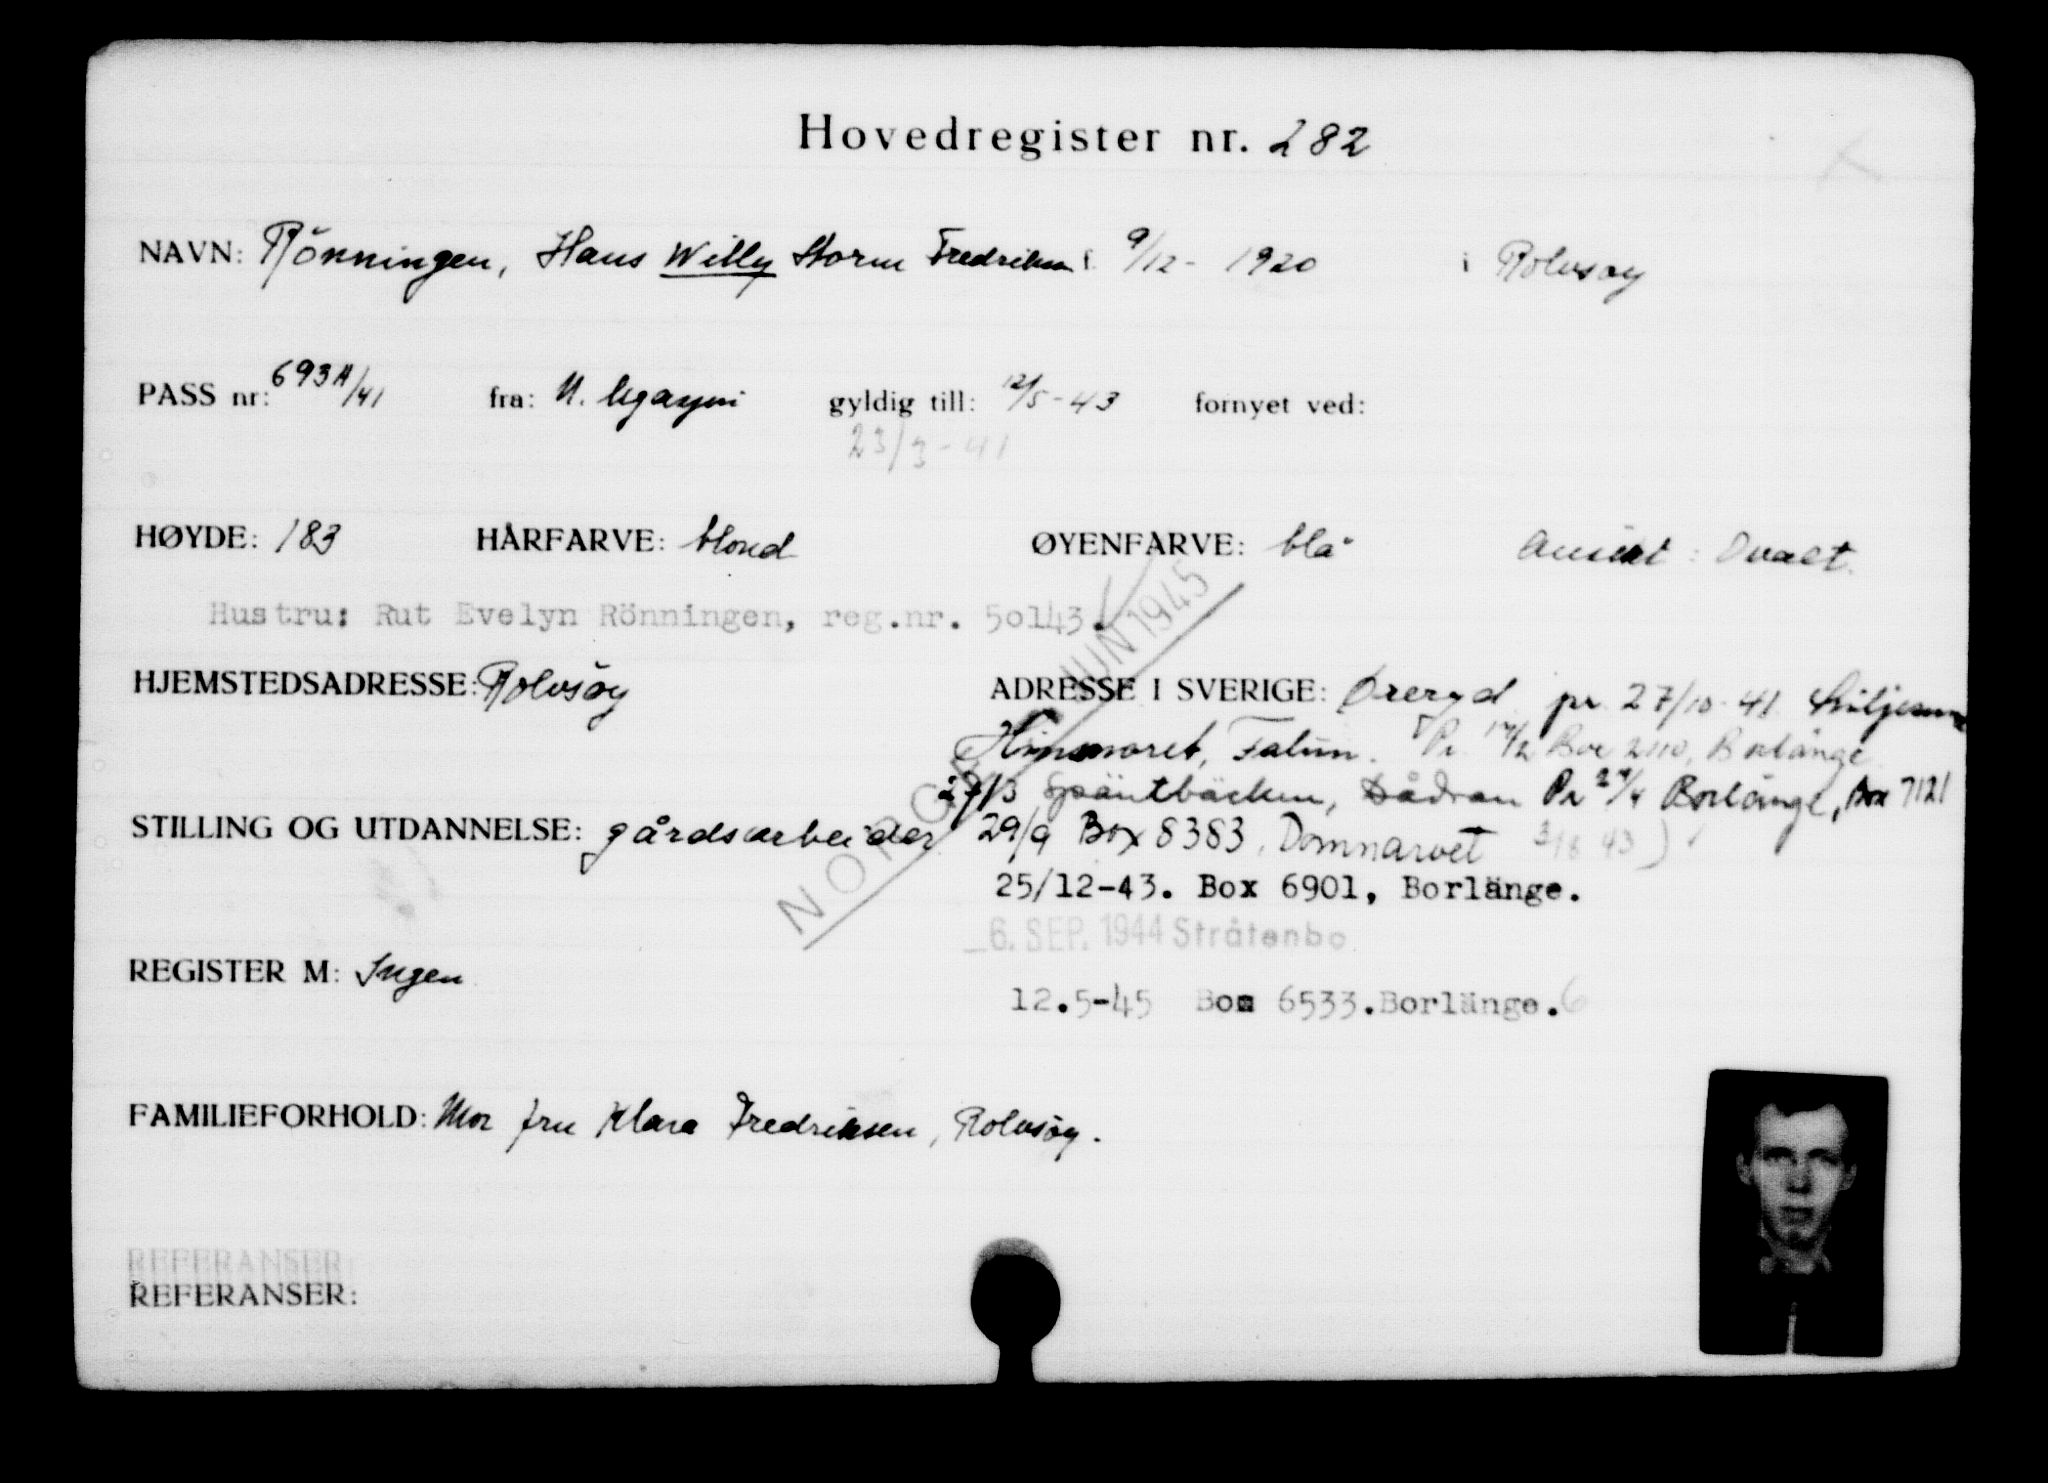 Hovedregister nr. 282
NAVN: Rönningen, Hans Willy Storm Fredriksen f. 9/12- 1920 i Rolvsøy
PASS nr: 693A/41 fra: gyldig till: 12/5-43 fornyet ved:
23/3-41
HØYDE: 183 HÅRFARVE: blond ØYENFARVE: blå Ansikt: Ovalt.
Hustru: Rut Evelyn Rönningen, reg.nr. 50143.
NORGE JUN 1945
HJEMSTEDSADRESSE: Rolvsöy ADRESSE I SVERIGE: Øreryd pr. 27/10-41
Falun. Pr. 14/2 Box 2110, Borlänge
Dådran Pr 29/4 Borlänge, Box 7121
STILLING OG UTDANNELSE: gårdsarbeider 29/9 Box 8383, Domnarvet
25/12-43. Box 6901, Borlänge.
_6. SEP. 1944 Stråtenbo
REGISTER M: Ingen
12.5-45 Box 6533.Borlänge.
FAMILIEFORHOLD: Mor fru Klara Fredriksen, Rolvsöy.
REFERANSER
REFERANSER: